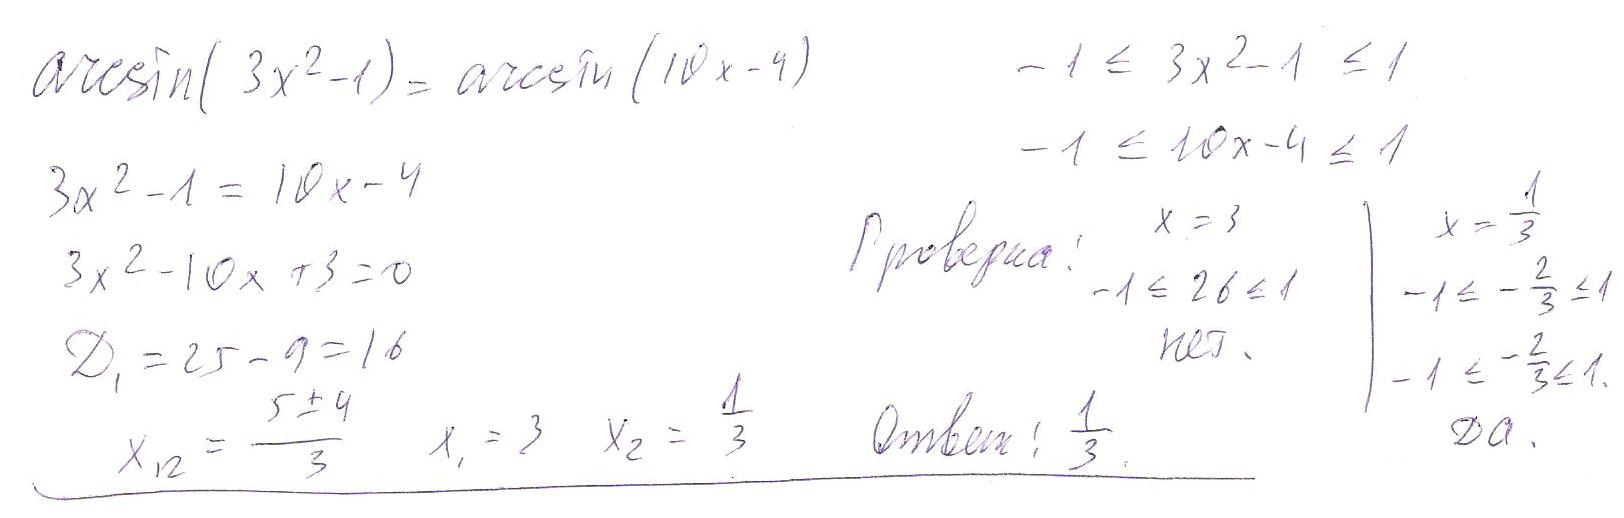 arcsin(3x²-1) = arcsin(10x-4)
-1 ≤ 3x²-1 ≤ 1
-1 ≤ 10x-4 ≤ 1
3x²-1 = 10x-4
3x²-10x+3=0
D₁ = 25-9=16
x₁₂ = (5±4)/3 x₁ = 3 x₂ = 1/3
Проверка:
x = 3
-1 ≤ 26 ≤ 1
нет.
x = 1/3
-1 ≤ -2/3 ≤ 1
-1 ≤ -2/3 ≤ 1.
да.
Ответ: 1/3.